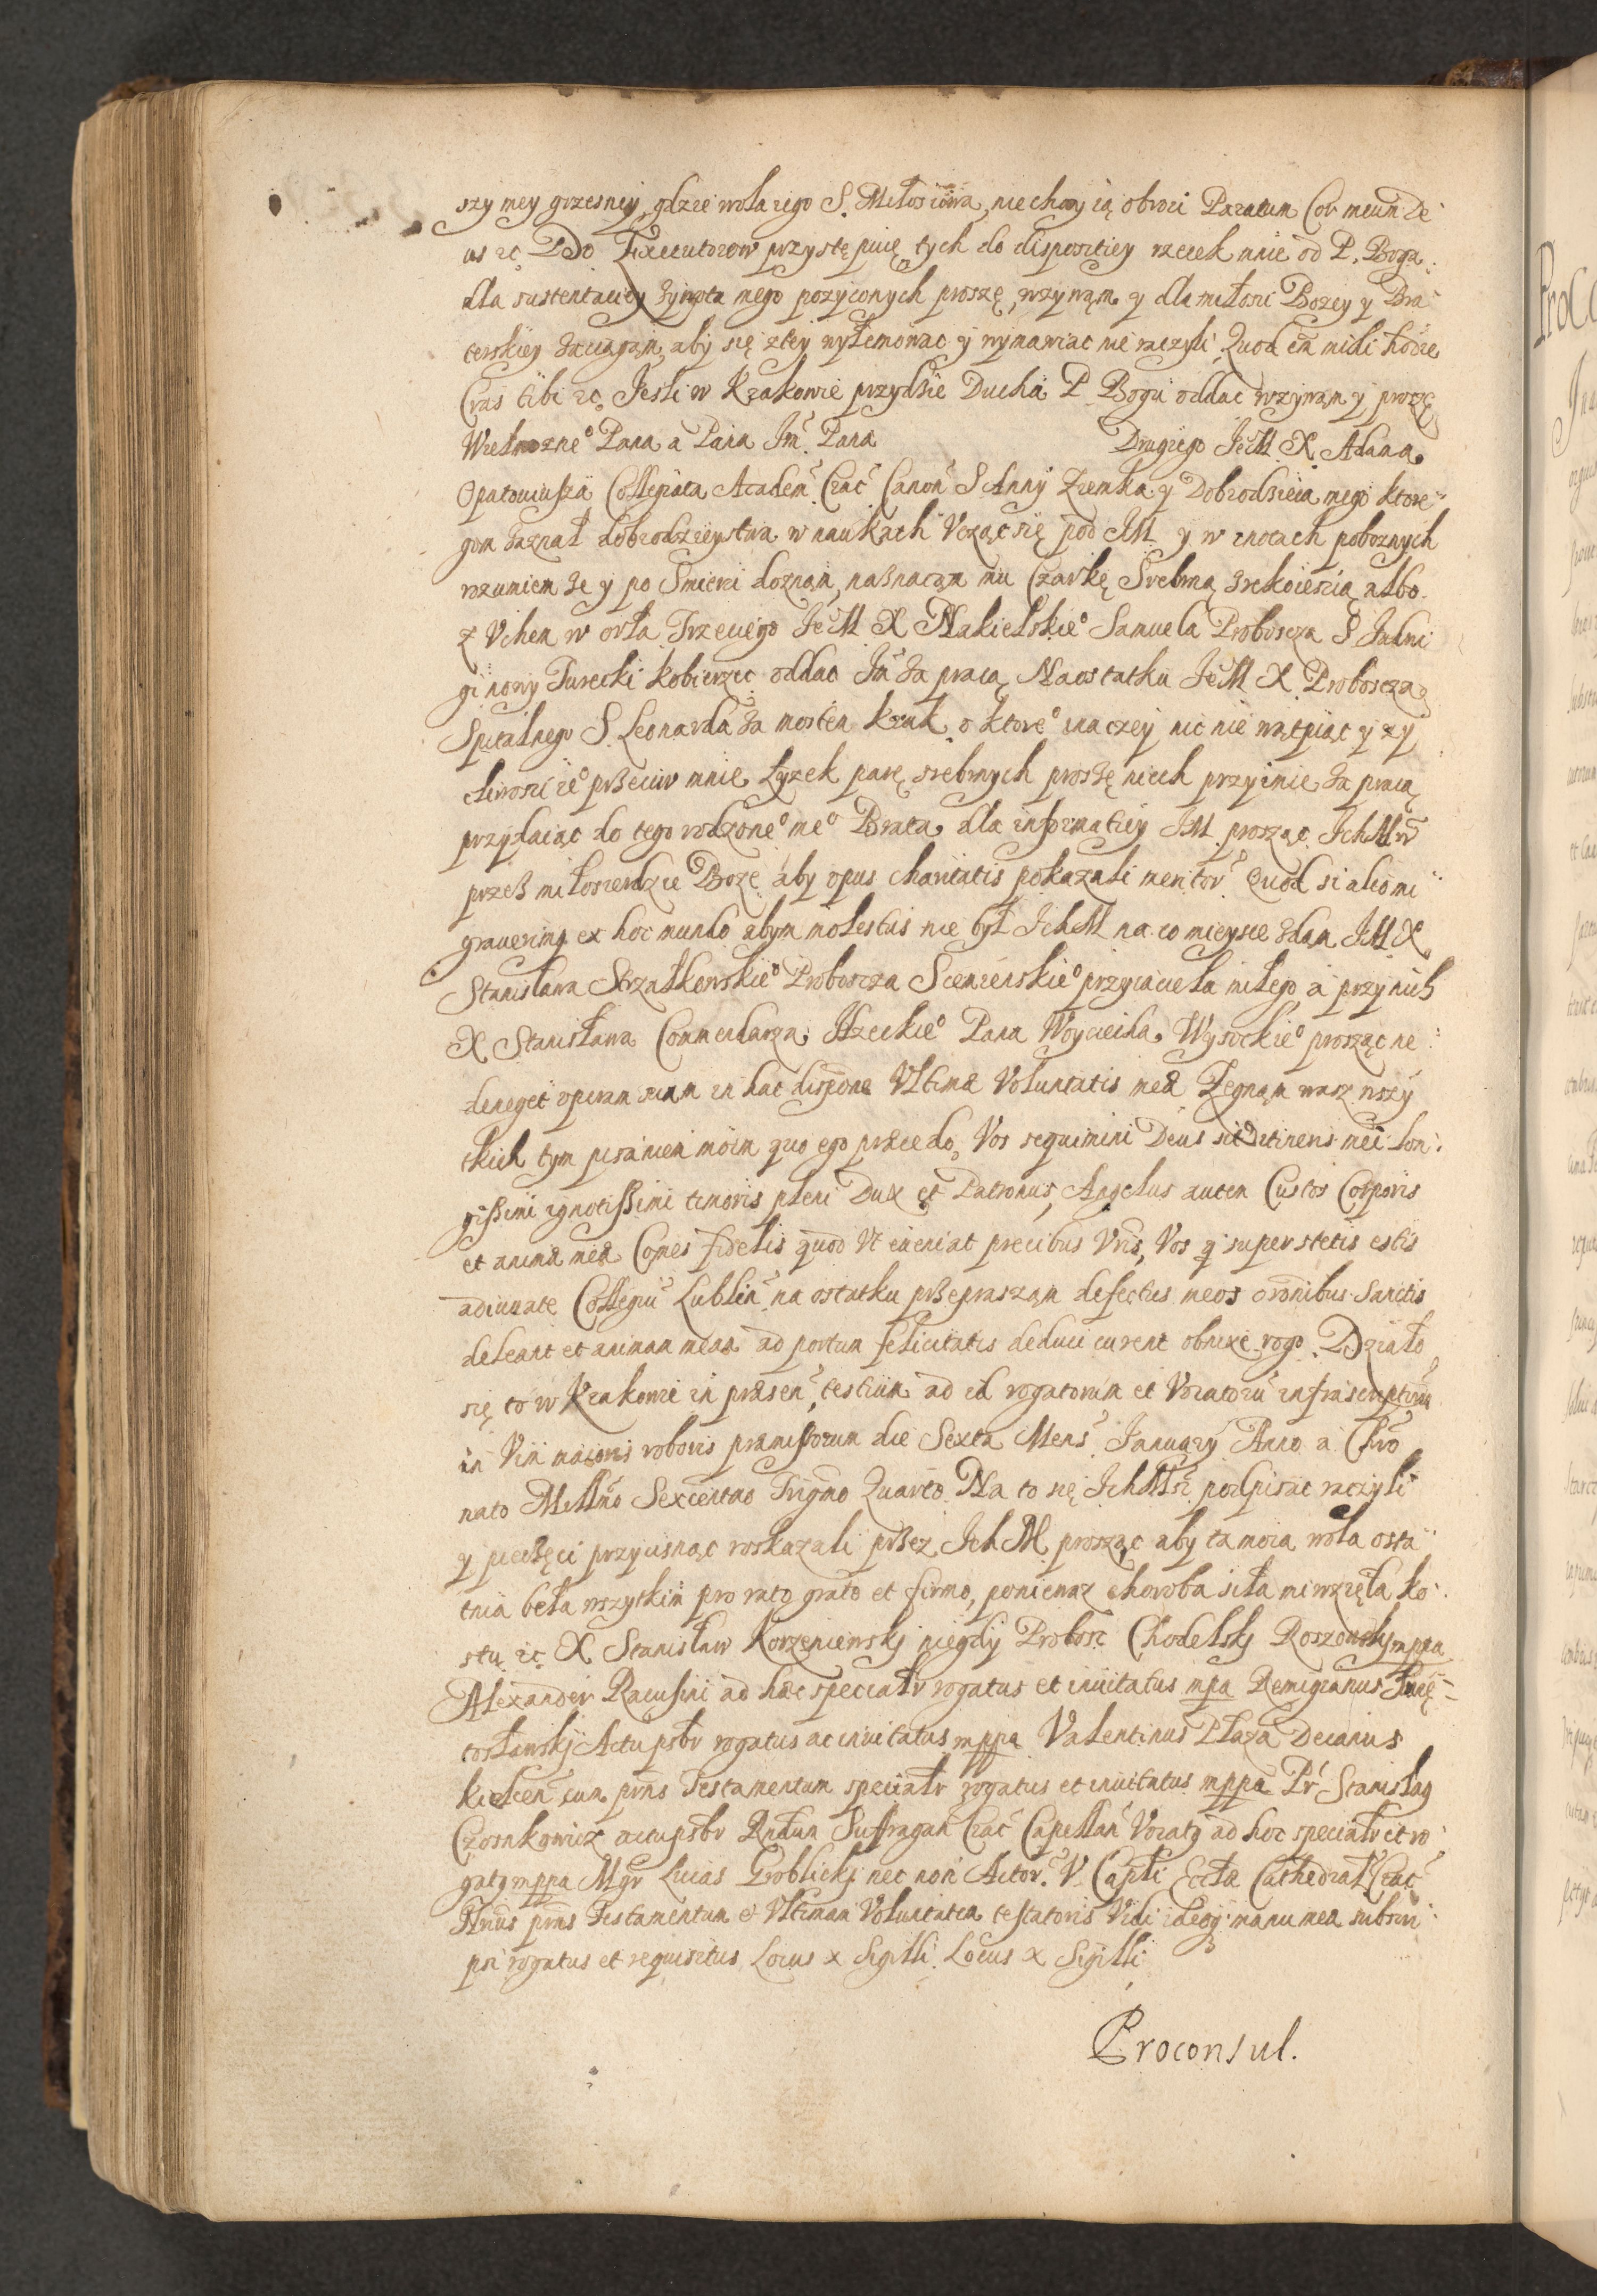 szy mey grzesney, gdzie wola iego S. Miłosciwa, niechay ią obroci Paratum Cor meum De
us &c. Do Exequutorow przystępuię tych do dispozitiey rzecek mnie od P. Boga
dla sustentaciey zywota mego pozyconych proszę, wzywąm y dla miłosci Bozey y Bra
terskiey zaciągąm aby się z tey wyłemowac y wymawiac nie raczyli Quod em̃ mihi hodie
Cras tibi &c. Jesli w Krakowie przydzie Ducha P. Bogu oddac wzywąm y proszę
Wielmozne° Pana a Pana Jm̃ Pana Drugiego JeM X. Adama
Opatouiusza Collegiata Academ̃ Crac̃ Canoñ S Anny Ziemka y Dobrodzieia mego ktore
gom zaznał dobrodzieystwa w naukach Vcząc się pod JM y w cnotach poboznych
rozumiem ze y po Smierci doznąm, naznacząm mu Czarkę Srebrną z rekoiescią albo
z Vchem w orła Trzeciego JeM X Nakielskie° Samuela Proboscza S Jadwi
gi nowy Turecki kobierzec oddac Jm̃ za pracą Naostatku JeM X. Proboscza
Spitalnego S. Leonarda za mostem Krak. o ktore° inaczey nic nie wątpiąc y zy
cliwosci ie° przeciw mnie Łyzek parę srebrnych proszę niech przyimie za pracą
przydaiąc do tego rodzone° me° Brata, dla informatiey JM. prosząc JchMw̃
przez miłosierdzie Boze aby opus charitatis pokazali meritor̃ Quod si alio mi
grauerimq ex hoc mundo abym molestus nie był JchM na co mieysce zdąm JM X
Stanisława Strzałkowskie° Proboscza Sieminskie° przyiaciela miłego a przy nich
X. Stanisława Commendarza Jłzeckie° Pana Woyciecha Wysockie° prosząc ne
deneget operam suam in hac dispone Vltimæ Voluntatis meæ Zegnąm wasz wszy
tkich tym pisaniem moim quo ego præcedo, Vos sequimini Deus sit Itineris mei lon
gissimi ignotissimi timoris pleni Dux et Patronus, Angelus autem Custos Corporis
et animæ meæ Comes fidelis quod Vt eueniat precibus Vris, Vos q superstetis estis
adiuuate Collegiũ Lubliñ na ostatku przeprasząm defectus meos orõnibus Sanctis
deleant et animam meam ad portum felicitatis deduci curent obnixe rogo. Działo
się to w Krakowie in præseñ, testium ad id rogatorum et Vocatorũ infrascriptorũ
in Vim maioris roboris præmissorum die Sexta Mens̃ January Anno a Chr̃o
nato Millm̃o Sexcentmo Trigmo Quarto. Na to się JchMsc podpisac raczyli
y pieczęci przycisnąc roskazali przez JchM prosząc aby ta moia wola osta
tnia beła wszytkim pro rato grato et firmo, poniewaz choroba siła mi wzięła ko
stu &c. X Stanisław Korzeniewskj niegdy Probosc Chodelskj Roszowskj mppa
Alexander Racusini ad hæc specialr̃ rogatus et inuitatus mpa Remigianus Swię
tosławskj Actu psbr rogatus ac inuitatus mppa Valentinus Płaza Decanus
kielceñ cum prns Testamentum specialr̃ rogatus et inuitatus mppa Pr Stanislaq
Czosnkowicz actu psbr Rndum Suffragañ Crac̃ Capellañ Vocatq ad hoc specialr̃ et ro
gatq mppa Mgr Lucas Groblickj nec non Actor̃ V. Caplj Eccłæ Cathedral Crac̃
Nrius prns Testamentum et Vltimam Voluntatem testatoris Vidi ideoq manu mea subscri
psi rogatus et requisitus Locus x Sigilli. Locus x Sigilli
Proconsul.